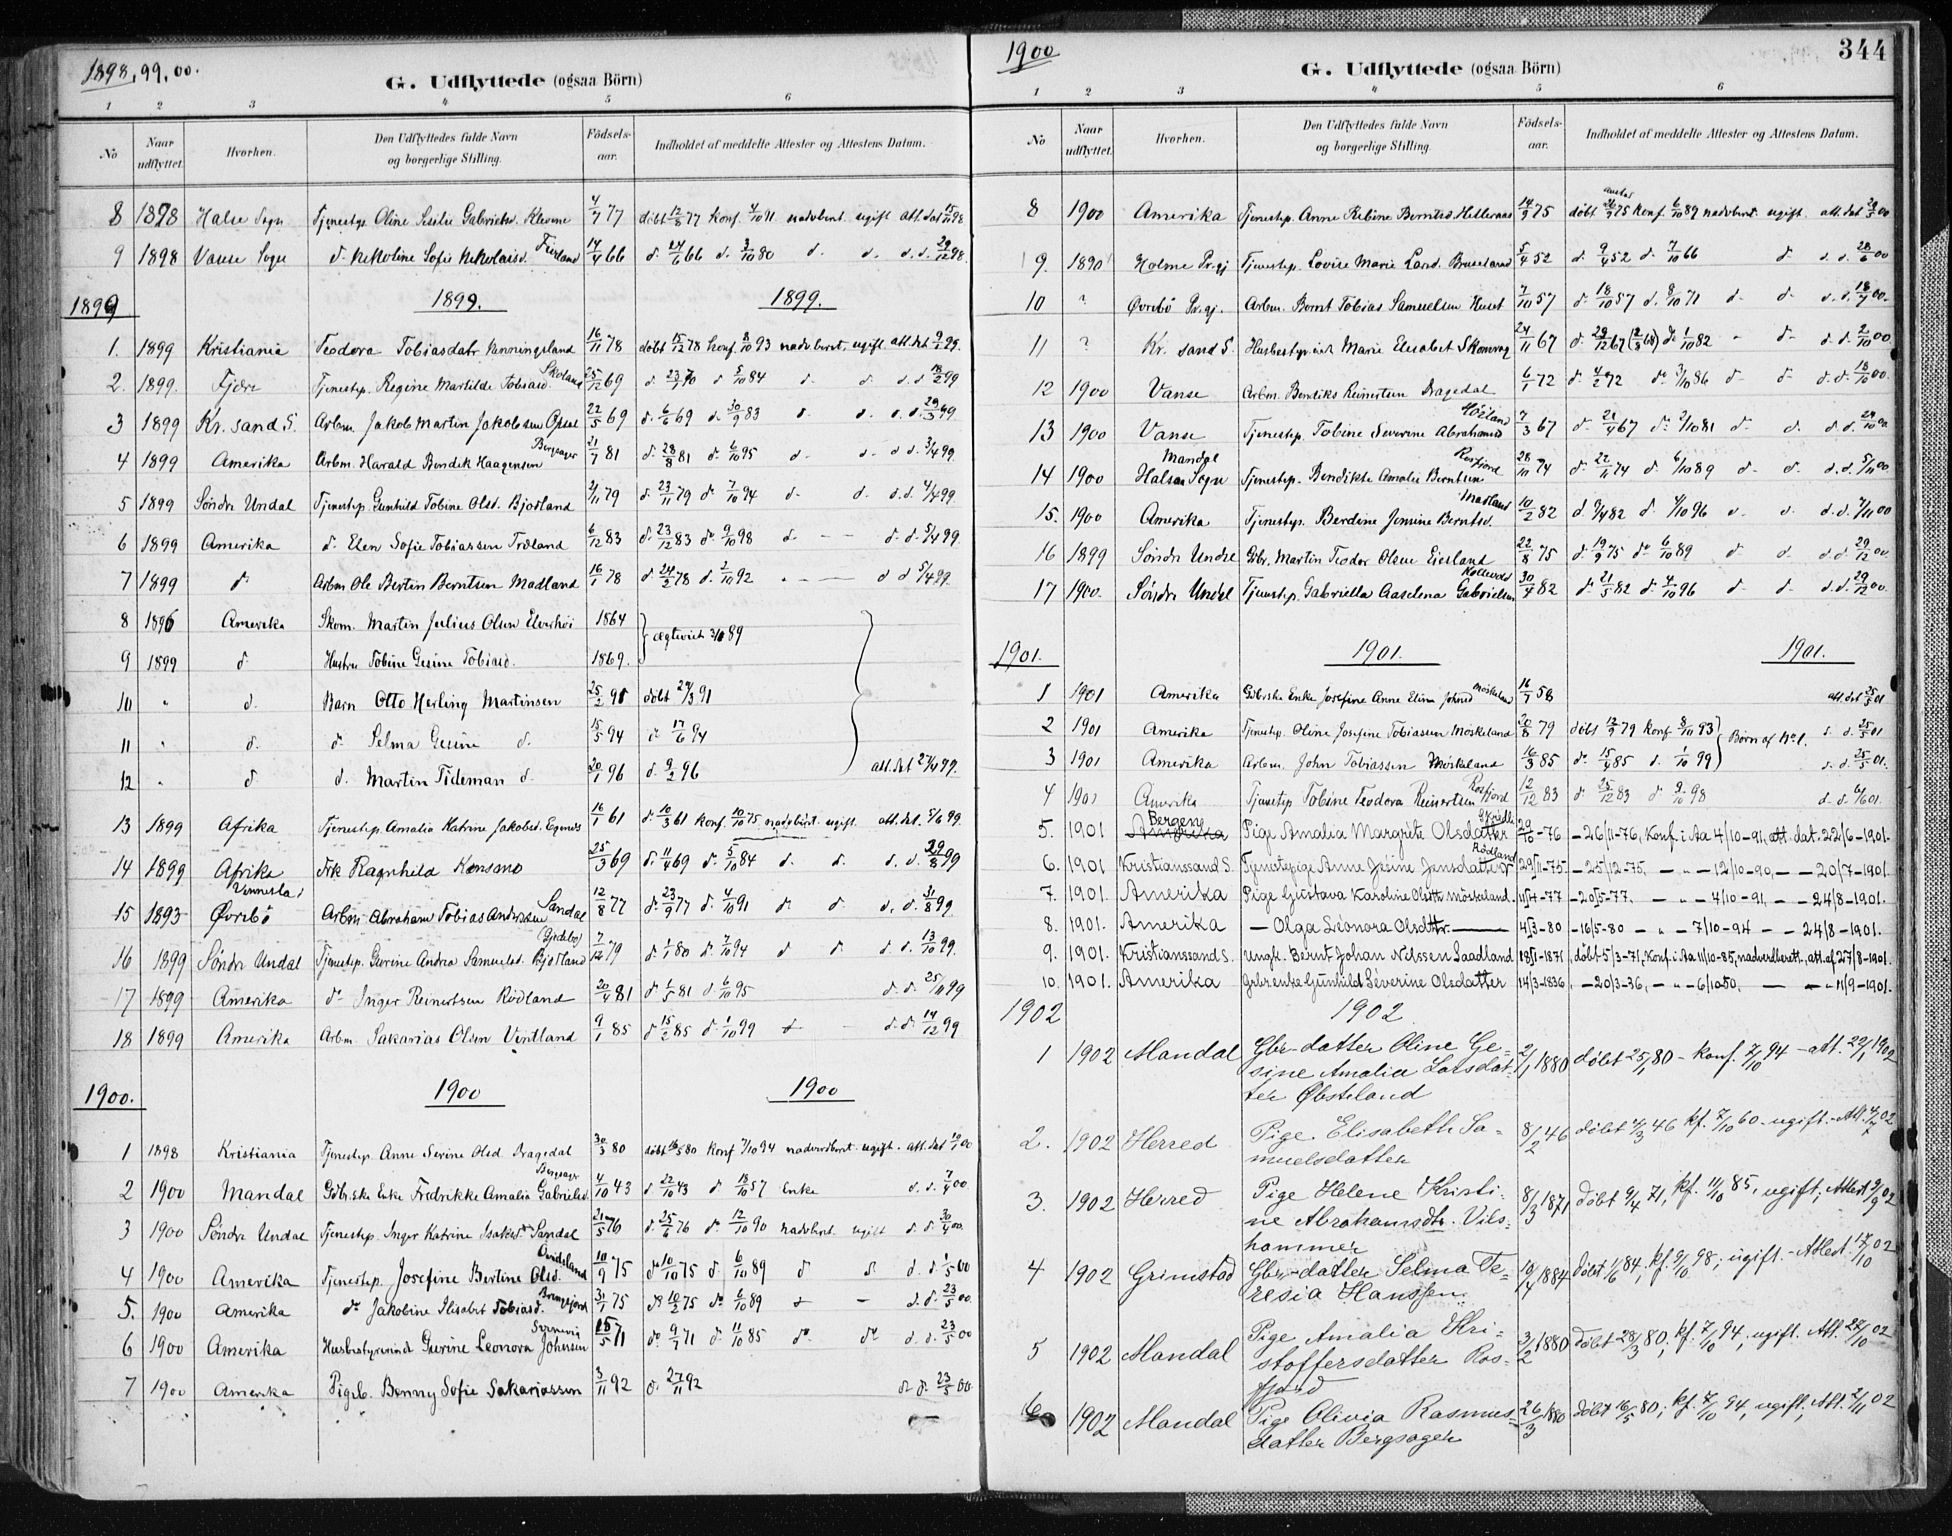 1898, 99, 00.
G. Udflyttede (ogsaa Börn)
1 2 3 4 5 6
No Naar udflyttet. Hvorhen. Den Udflyttedes fulde Navn og borgerlige Stilling. Födsels-aar. Indholdet af meddelte Attester og Attestens Datum.
8 1898 Halse Sogn Tjenestep. Oline Gabrielsd. Klevene 4/7 77
9 1898 Vanse Sogn d. Nikoline Sofie Nikolaisd. 14/4 66 d. 24/6 66 d. 3/10 80 d. d. d. d. 29/12 98.
1899 1899. 1899.
1. 1899 Kristiania Teodora Tobiasdatr Venningsland 16/11 78 döbt 15/12 78 konf. 8/10 93 att. dat 9/2 99.
2. 1899. Fjære Tjenestep. Regine Martilde Tobiasd. Skoland 25/12 69 d. 23/1 70 d 5/10 84 d. d. d. d 18/2 99
3 1899 Kr. sand S. Arbm. Jakob Martin Jakobsen Opsal 22/5 69 d. 6/6 69 d. 30/9 83 d. d. d. d. 29/3 99.
4 1899 Amerika Arbm. Harald Bendik Haagensen Bergsager 21/7 81 d. 28/8 81 d. 6/10 95 d. d. d d. 3/4 99.
5 1899 Söndre Undal Tjenestep. Gunhild Tobine Olsd. Bjodland d. 23/11 79 d. 7/10 94 d. d. d. d. 4/4 99.
6 1899 Amerika d. Elen Sofie Tobiassen Træland 6/12 83 d. 23/12 83 d. 9/10 98 d. d. d. 5/4 99
7 1899 d. Arbm. Ole Bertin Berntsen Madland 16/1 78 d. 24/2 78 d. 2/10 92 d d 5/4 99.
8 1896 Amerika Skom. Martin Julius Olsen Elverhöi 1864
ægteviet 89
9 1899 d. Hustru Tobine Gesine Tobiasd. 1869.
10 " d. Barn Otto Herling Martinsen 25/2 91 döbt 91
11 " d. d. Selma Gesine d. 15/5 94 d. 17/6 94
12 " d d. Martin Tideman d. 20/1 96 d. 9/2 96 att. dat 99.
13 1899 Afrika Tjenestep. Amalia Katrine Jakobsd. Egenes 16/1 61 d. 10/3 61 konf. 10/10 75 nadvbert. ugift. att. dat. 5/6 99.
14 1899 Afrika Frk Ragnhild Konsmo 25/3 69 d. 11/4 69 d. 5/10 84 d. d. d. d. 29/8 99
15 1893 Vennesla Övrebö Arbm. Abraham Tobias Anderssen Sandal 12/8 77 d. 23/9 77 d. 4/10 91 d. d. d. d. 31/8 99.
16 1899 Söndre Undal Tjenestep. Gurine Andrea Samuelsd. Bjodland 7/12 79 d. 1/1 80 d. 7/10 94 d d. d d. 13/10 99.
17 1899 Amerika d. Inger Reinertsen Rödland 20/4 81 d. 1/5 81 d. 6/10 95 d. d. 25/10 99
18 1899 Amerika Arbm Sakarias Olsen Vintland 9/1 85 d. 15/2 85 d. 1/10 99 d d. d. 14/12 99
1900. 1900 1900
1 1898 Kristiania Tjenestep. Anne Serine Olsd Dragedal 30/3 80
2 1900 Mandal Gdbr.ske Enke Fredrikke Amalia Gabrielsd. Bergsager 4/10 43 d. 22/10 43 d 18/10 57 Enke d. d. 7/4 00.
3 1900 Söndre Undal Tjenestep. Inger Katrine Isaksd. Sandal 21/5 76 d. 25/6 76 d. 12/10 90 nadvbert. ugift d. d. 30/4 00.
4 1900 Amerika Tjenestep. Josefine Bertine Olsd. 10/9 75 d. 10/10 75 d 6/10 89 d d. d. d. 1/5 00
5. 1900 Amerika d. Jakobine Elisabet Tobiasd. 31/1 75 d. 10/2 75 d. 6/10 89 d d. d. 23/5 00.
6 1900 Amerika Husbestyrerinde Gurine Leonora Johnsen 18/5 71 d. 9/7 71 d. 11/10 85 d. d. d. d. 23/5 00
7 1900 Amerika Pigeb. Benny Sofie Sakariassen 3/11 92 d. 27/11 92 d. d. 23/5 00.
1900
344
G. Udflyttede (ogsaa Börn)
1 2 3 4 5 6
No Naar udflyttet. Hvorhen. Den Udflyttedes fulde Navn og borgerlige Stilling. Födsels-aar. Indholdet af meddelte Attester og Attestens Datum.
8 1900 Amerika Tjenestep. Anne Rebine Berntsd. Helleraas 14/9 75 döbt 26/9 75 konf. 6/10 89 nadvbert. ugift. att. dat 29/5 00
9. 1890 Holme Pr.gj Tjenestep. Lovise Marie Larsd. Bruseland 5/4 52 d. 9/4 52 d. 7/10 66 d. d. d. 28/6 00
10 ? Övrebö Pr.gj. Arbm. Bernt Tobias Samuelsen 7/10 57 d. 18/10 57 d. 8/10 71 d. d. d. d. 18/7 00.
11 ? Kr. sand S. Husbestyrerinde Marie Elisabet Skomrag 24/11 67 d. 29/12 67 d. 1/10 82 d. d. d. 2/10 00.
12 1900 Vanse Arbm. Bendiks Reinertsen Dragedal 6/1 72 d. 4/2 72 d. 3/10 86 d. d. d. d. 18/10 00.
13 1900 Vanse Tjenestep. Tobine Severine Abrahamsd 7/3 67 d. 21/4 67 d. 2/10 81 d. d. d. d. 24/10 00.
14 1900 Mandal Halsaa Sogn Tjenestep. Bendikte Amalie Berntsen Rosfjord 28/10 74 d. 22/11 74 d. 6/10 89 d. d. d. d. 5/11 00
15. 1900 Amerika Tjenestep. Berdine Jensine Berntsd. Madland 10/2 82 d. 9/4 82 d. 4/10 96 d. d. d. d. 7/11 00
16 1899 Söndre Undal Gbr. Martin Teodor Olsen Eiesland 22/8 75 d. 19/9 75 d. 6/10 89 d. d. d. d. 29/12 00.
17 1900 Söndre Undal Tjenestep. Gabriella Aaselena Gabrielsen 30/4 82 d. 21/5 82 d. 4/10 96 d. d. d. d. 29/12 00.
1901. 1901. 1901.
1 1901 Amerika Gbrske Enke Josefine Anne Elina Johnsd Möskeland 16/7 58 att. dat 25/5 01
2 1901 Amerika Tjenestep. Oline Josefine Tobiassen Möskeland 20/8 79 döbt 13/9 79 konf 8/10 93 Börn af No 1. d. d. 25/5 01
3 1901 Amerika Arbm. John Tobiassen Möskeland 16/3 85 d. 15/4 85 d. 1/10 99 d. d. 25/5 01.
4 1901 Amerika Tjenestep Tobine Teodora Reinertsen Rosfjord 12/12 83 d. 25/12 83 d. 9/10 98 d. d. 6/6 01.
5. 1901 Bergen Amerika Pige Amalia Margrete Olsdatter 29/10-76 -26/11-76, Konf. i Aa 4/10-91, att. dat. 22/6-1901.
6. 1901 Kristianssand S. Tjenestepige Anne Jesine Jensdatter Rödland 29/11-75 -25/12-75. - " - 12/10-90, - - 20/7-1901.
7. 1901 Amerika Pige Gustava Karoline Olsdtt. Möskeland. 11/4-77 -20/5-77. - " - 4/10-91, - - 24/8-1901.
8. 1901. Amerika - Olga Leonora Olsdttr. 4/3-80 -16/5-80 - " - 7/10-94 - - 24/8-1901.
9. 1901. Kristianssand S. Ungk. Bernt Johan Nilssen Laadland 18/1-1871 döbt 5/3-71, Konf. i Aa 11/10-85, nadverberett., att. af 27/8-1901.
10. 1901. Amerika Gebrenke Gunhild Severine Olsdatter 14/3-1836. -20/3-36, - " - 6/10 50. - " - 11/9-1901.
1902 1902
1 1902 Mandal Gbr-datter Oline Ge-
sine Amalia Larsdat-
ter Öbsteland 2/1 1880 döbt 25/1 80 - konf. 7/10 94 - att. 22/1 1902
2. 1902 Herred Pige Elisabeth Sa-
muelsdatter 8/2 46 döbt 4/3 46 kf. 7/10 60 - ugift. - Att. 4/7 02
3. 1902 Herred Pige Helene Kristi-
ne Abrahamsdtr. Vils-
hammer 8/3 1871 döbt 9/4 71, kf. 11/10 85, ugift, Attest 9/9 02
4 1902 Grimstad Gbr-datter Selma Te-
resia Hanssen. 1884 döbt 1/6 84, kf. 9/10 98; ugift. - Attest. 17/10 02
5 1902 Mandal Pige Amalia Kri-
stoffersdatter Ros-
fjord 3/2 1880 Döbt 28/3 80; kf. 7/10 94, ugift. Att. 27/10 02
6 1902 Mandal Pige Olivia Rasmus-
datter Bergsager 26/3 1880 Döbt 16/5 80; kf. 7/10 94, ugift, Att. 2/11 02